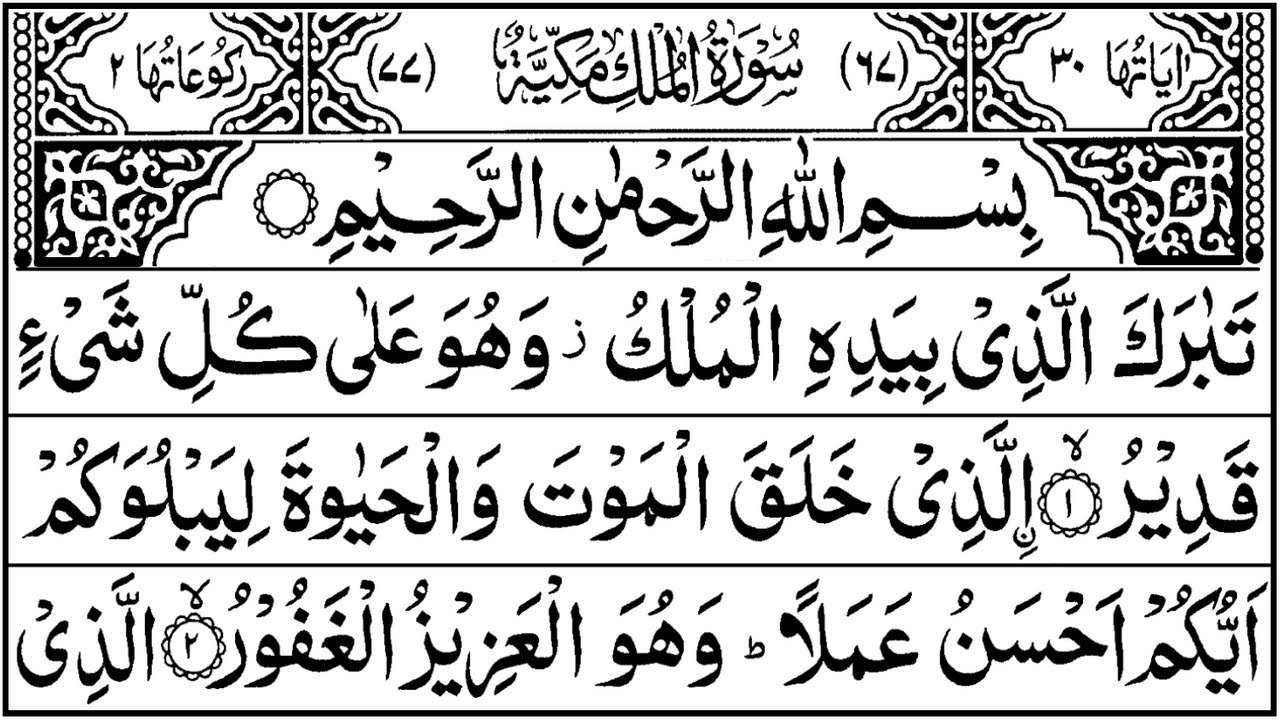 اٰیَاتُهَا ٣٠ (٦٧) سُوْرَةُ الْمُلْكِ مَكِّیَّةٌ (٧٧) رُكُوْعَاتُهَا ٢
بِسْمِ اللّٰهِ الرَّحْمٰنِ الرَّحِیْمِ
تَبٰرَكَ الَّذِیْ بِیَدِهِ الْمُلْكُ ز وَهُوَ عَلٰى كُلِّ شَیْءٍ
قَدِیْرُ ۙ ١ نِ الَّذِیْ خَلَقَ الْمَوْتَ وَالْحَیٰوةَ لِیَبْلُوَكُمْ
اَیُّكُمْ اَحْسَنُ عَمَلًا ؕ وَهُوَ الْعَزِیْزُ الْغَفُوْرُ ۙ ٢ الَّذِیْ